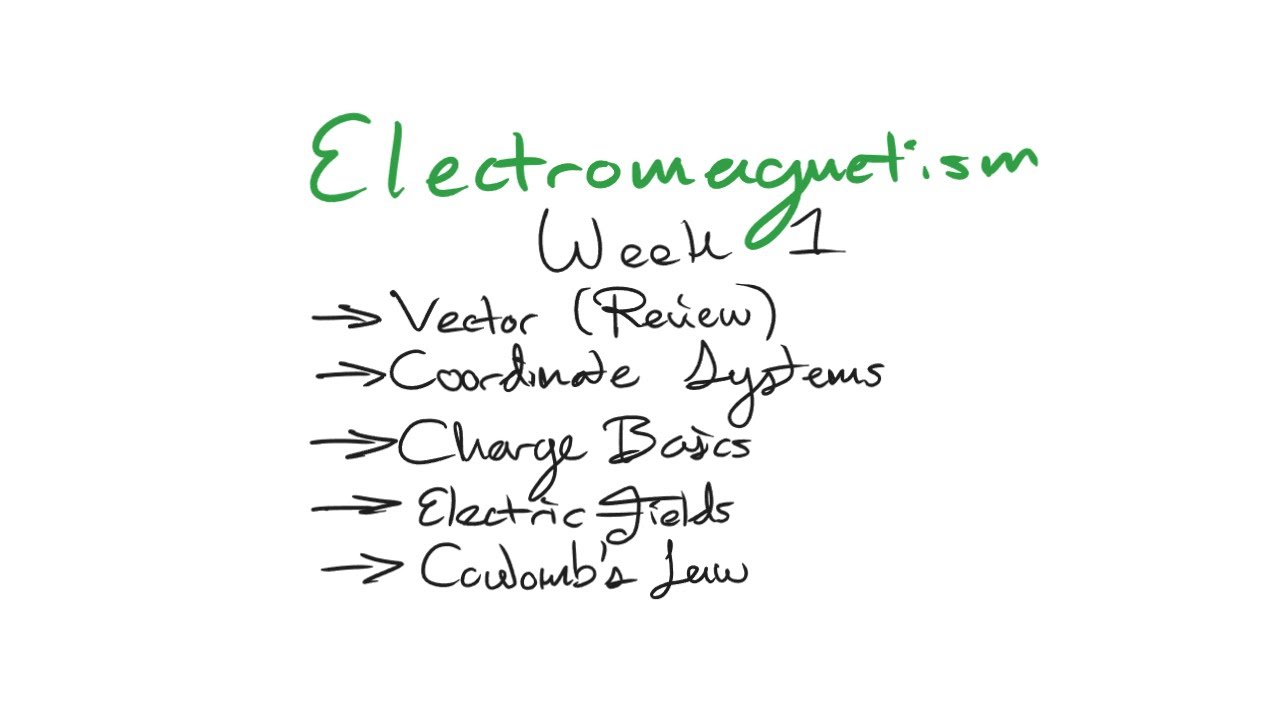 Electromagnetism
Week 1
→ Vector (Review)
→ Coordinate Systems
→ Charge Basics
→ Electric Fields
→ Coulomb's Law